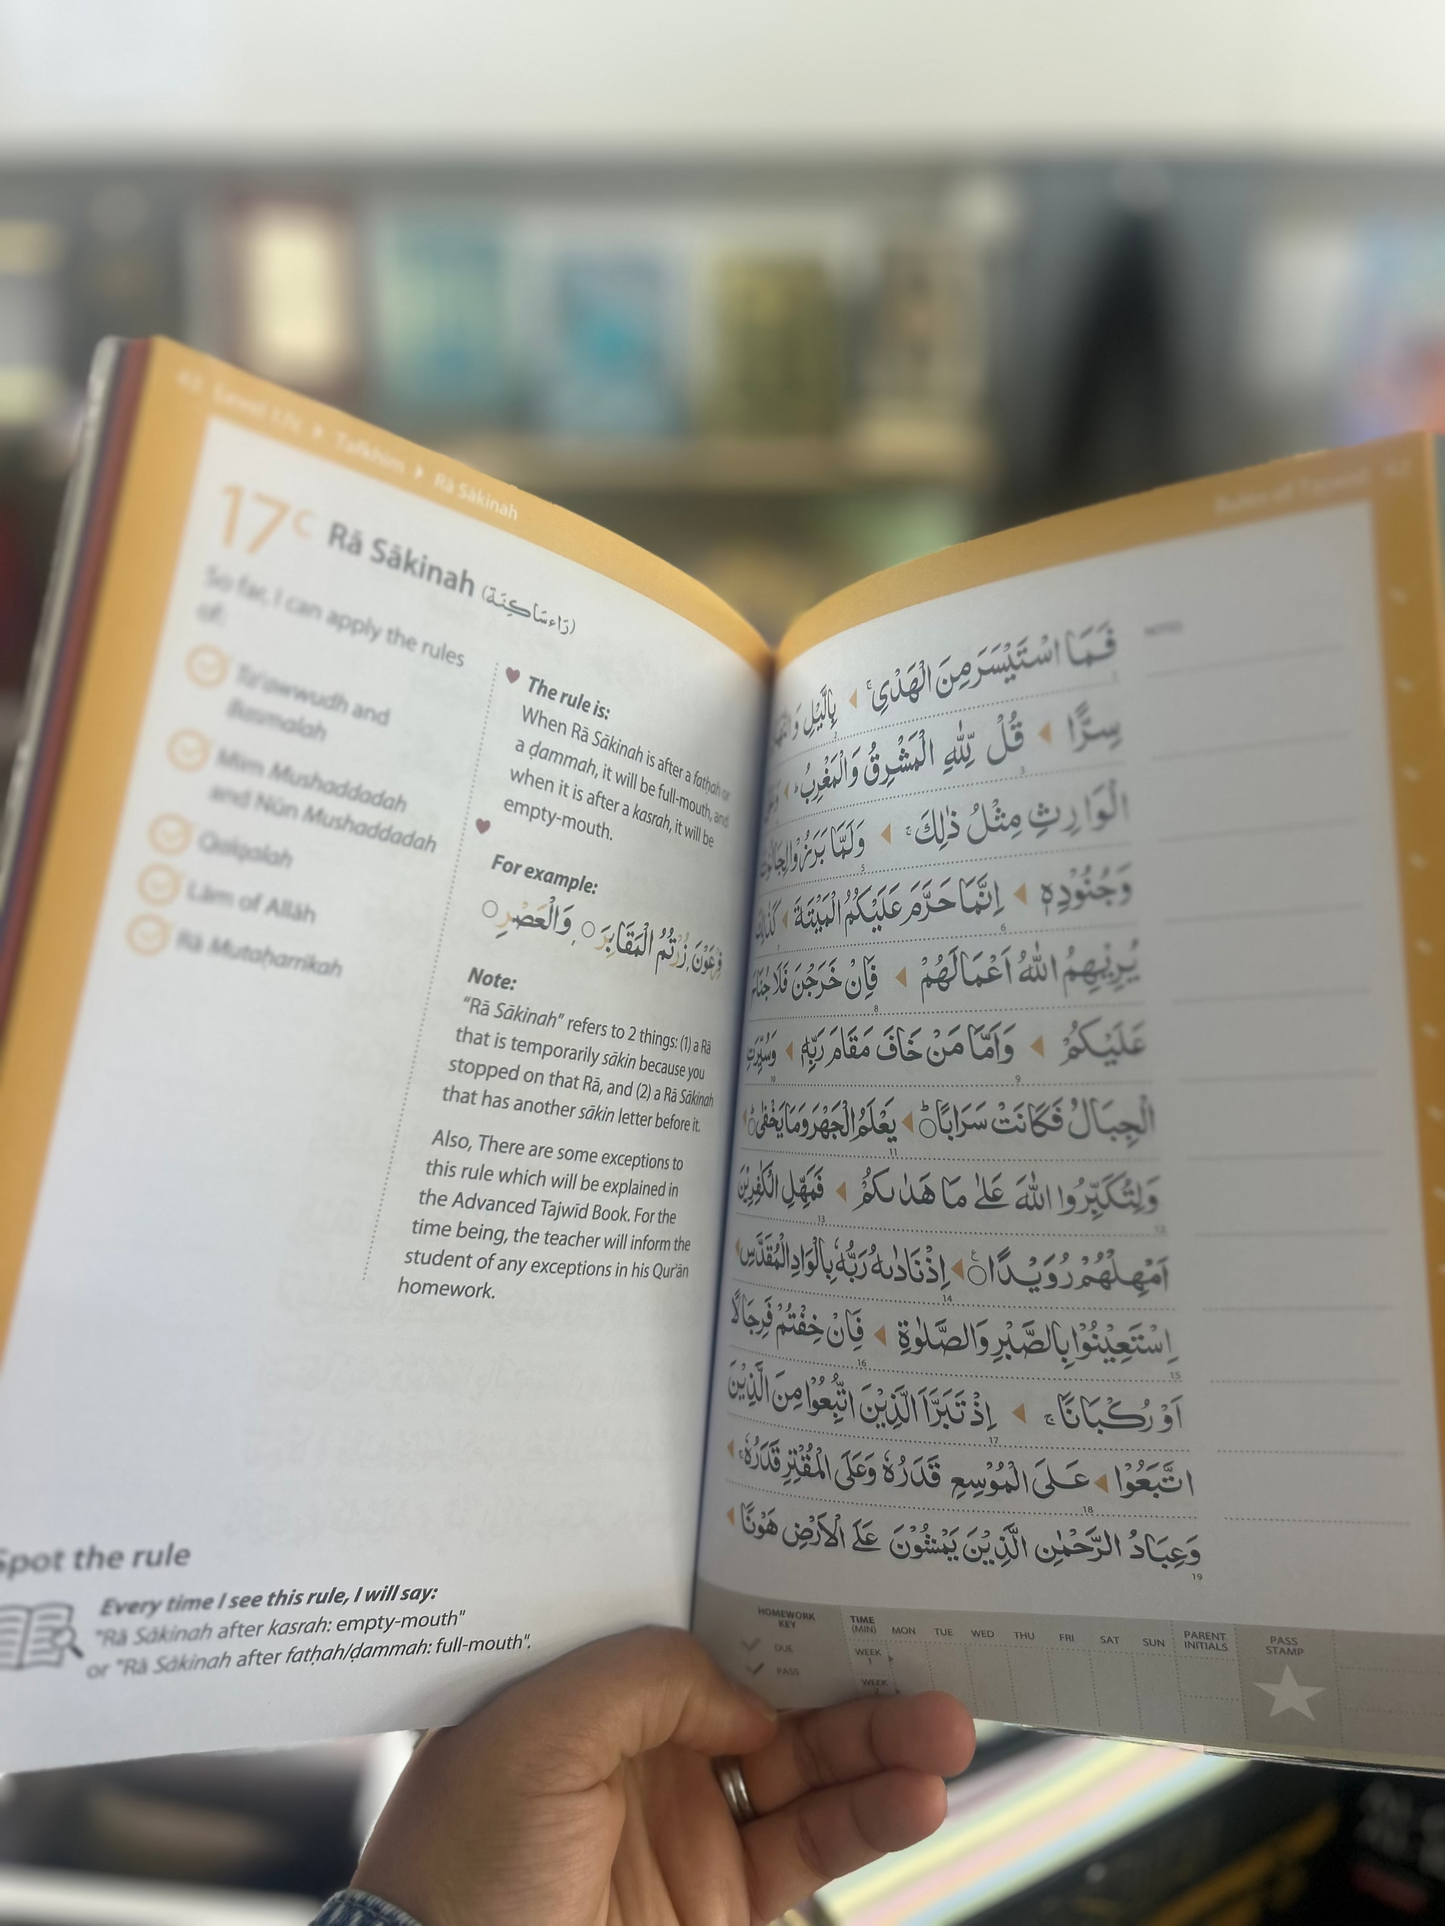 Level 17c ▸ Tafkhīm ▸ Rā Sākinah
17c Rā Sākinah (رَاء سَاكِنَة)
So far, I can apply the rules
of:
Ta'awwudh and
Basmalah
Mīm Mushaddadah
and Nūn Mushaddadah
Qalqalah
Lām of Allāh
Rā Mutaḥarrikah
The rule is:
When Rā Sākinah is after a fatḥah or
a ḍammah, it will be full-mouth, and
when it is after a kasrah, it will be
empty-mouth.
For example:
فِرْعَوْنَ، زُرْتُمُ الْمَقَابِرَ ۝، وَالْعَصْرِ ۝
Note:
"Rā Sākinah" refers to 2 things: (1) a Rā
that is temporarily sākin because you
stopped on that Rā, and (2) a Rā Sākinah
that has another sākin letter before it.
Also, There are some exceptions to
this rule which will be explained in
the Advanced Tajwīd Book. For the
time being, the teacher will inform the
student of any exceptions in his Qur'ān
homework.
Spot the rule
Every time I see this rule, I will say:
"Rā Sākinah after kasrah: empty-mouth"
or "Rā Sākinah after fatḥah/ḍammah: full-mouth".
Rules of Tajwīd
NOTES
فَمَا اسْتَيْسَرَ مِنَ الْهَدْىِ ۚ ◂ بِالَّيْلِ
سِرًّا ◂ قُلْ لِّلّٰهِ الْمَشْرِقُ وَالْمَغْرِبُ ؕ ◂
الْوَارِثِ مِثْلُ ذٰلِكَ ۚ ◂ وَلَمَّا بَرَزُوْا لِجَالُوْتَ
وَجُنُوْدِهٖ ◂ اِنَّمَا حَرَّمَ عَلَيْكُمُ الْمَيْتَةَ ◂ كَذٰلِكَ
يُرِيْهِمُ اللّٰهُ اَعْمَالَهُمْ ◂ فَاِنْ خَرَجْنَ فَلَا جُنَاحَ
عَلَيْكُمْ ◂ وَاَمَّا مَنْ خَافَ مَقَامَ رَبِّهٖ ◂ وَسُيِّرَتِ
الْجِبَالُ فَكَانَتْ سَرَابًا ۝ؕ ◂ يَعْلَمُ الْجَهْرَ وَمَا يَخْفٰى ۝ؕ ◂
وَلِتُكَبِّرُوا اللّٰهَ عَلٰى مَا هَدٰىكُمْ ◂ فَمَهِّلِ الْكٰفِرِيْنَ
اَمْهِلْهُمْ رُوَيْدًا ۝ۧ ◂ اِذْ نَادٰىهُ رَبُّهٗ بِالْوَادِ الْمُقَدَّسِ ◂
اِسْتَعِيْنُوْا بِالصَّبْرِ وَالصَّلٰوةِ ◂ فَاِنْ خِفْتُمْ فَرِجَالًا
اَوْ رُكْبَانًا ۚ ◂ اِذْ تَبَرَّاَ الَّذِيْنَ اتُّبِعُوْا مِنَ الَّذِيْنَ
اتَّبَعُوْا ◂ عَلَى الْمُوْسِعِ قَدَرُهٗ وَعَلَى الْمُقْتِرِ قَدَرُهٗ ۚ ◂
وَعِبَادُ الرَّحْمٰنِ الَّذِيْنَ يَمْشُوْنَ عَلَى الْاَرْضِ هَوْنًا ◂
HOMEWORK KEY
DUE
PASS
TIME (MIN) MON TUE WED THU FRI SAT SUN PARENT INITIALS PASS STAMP
WEEK 1
WEEK 2